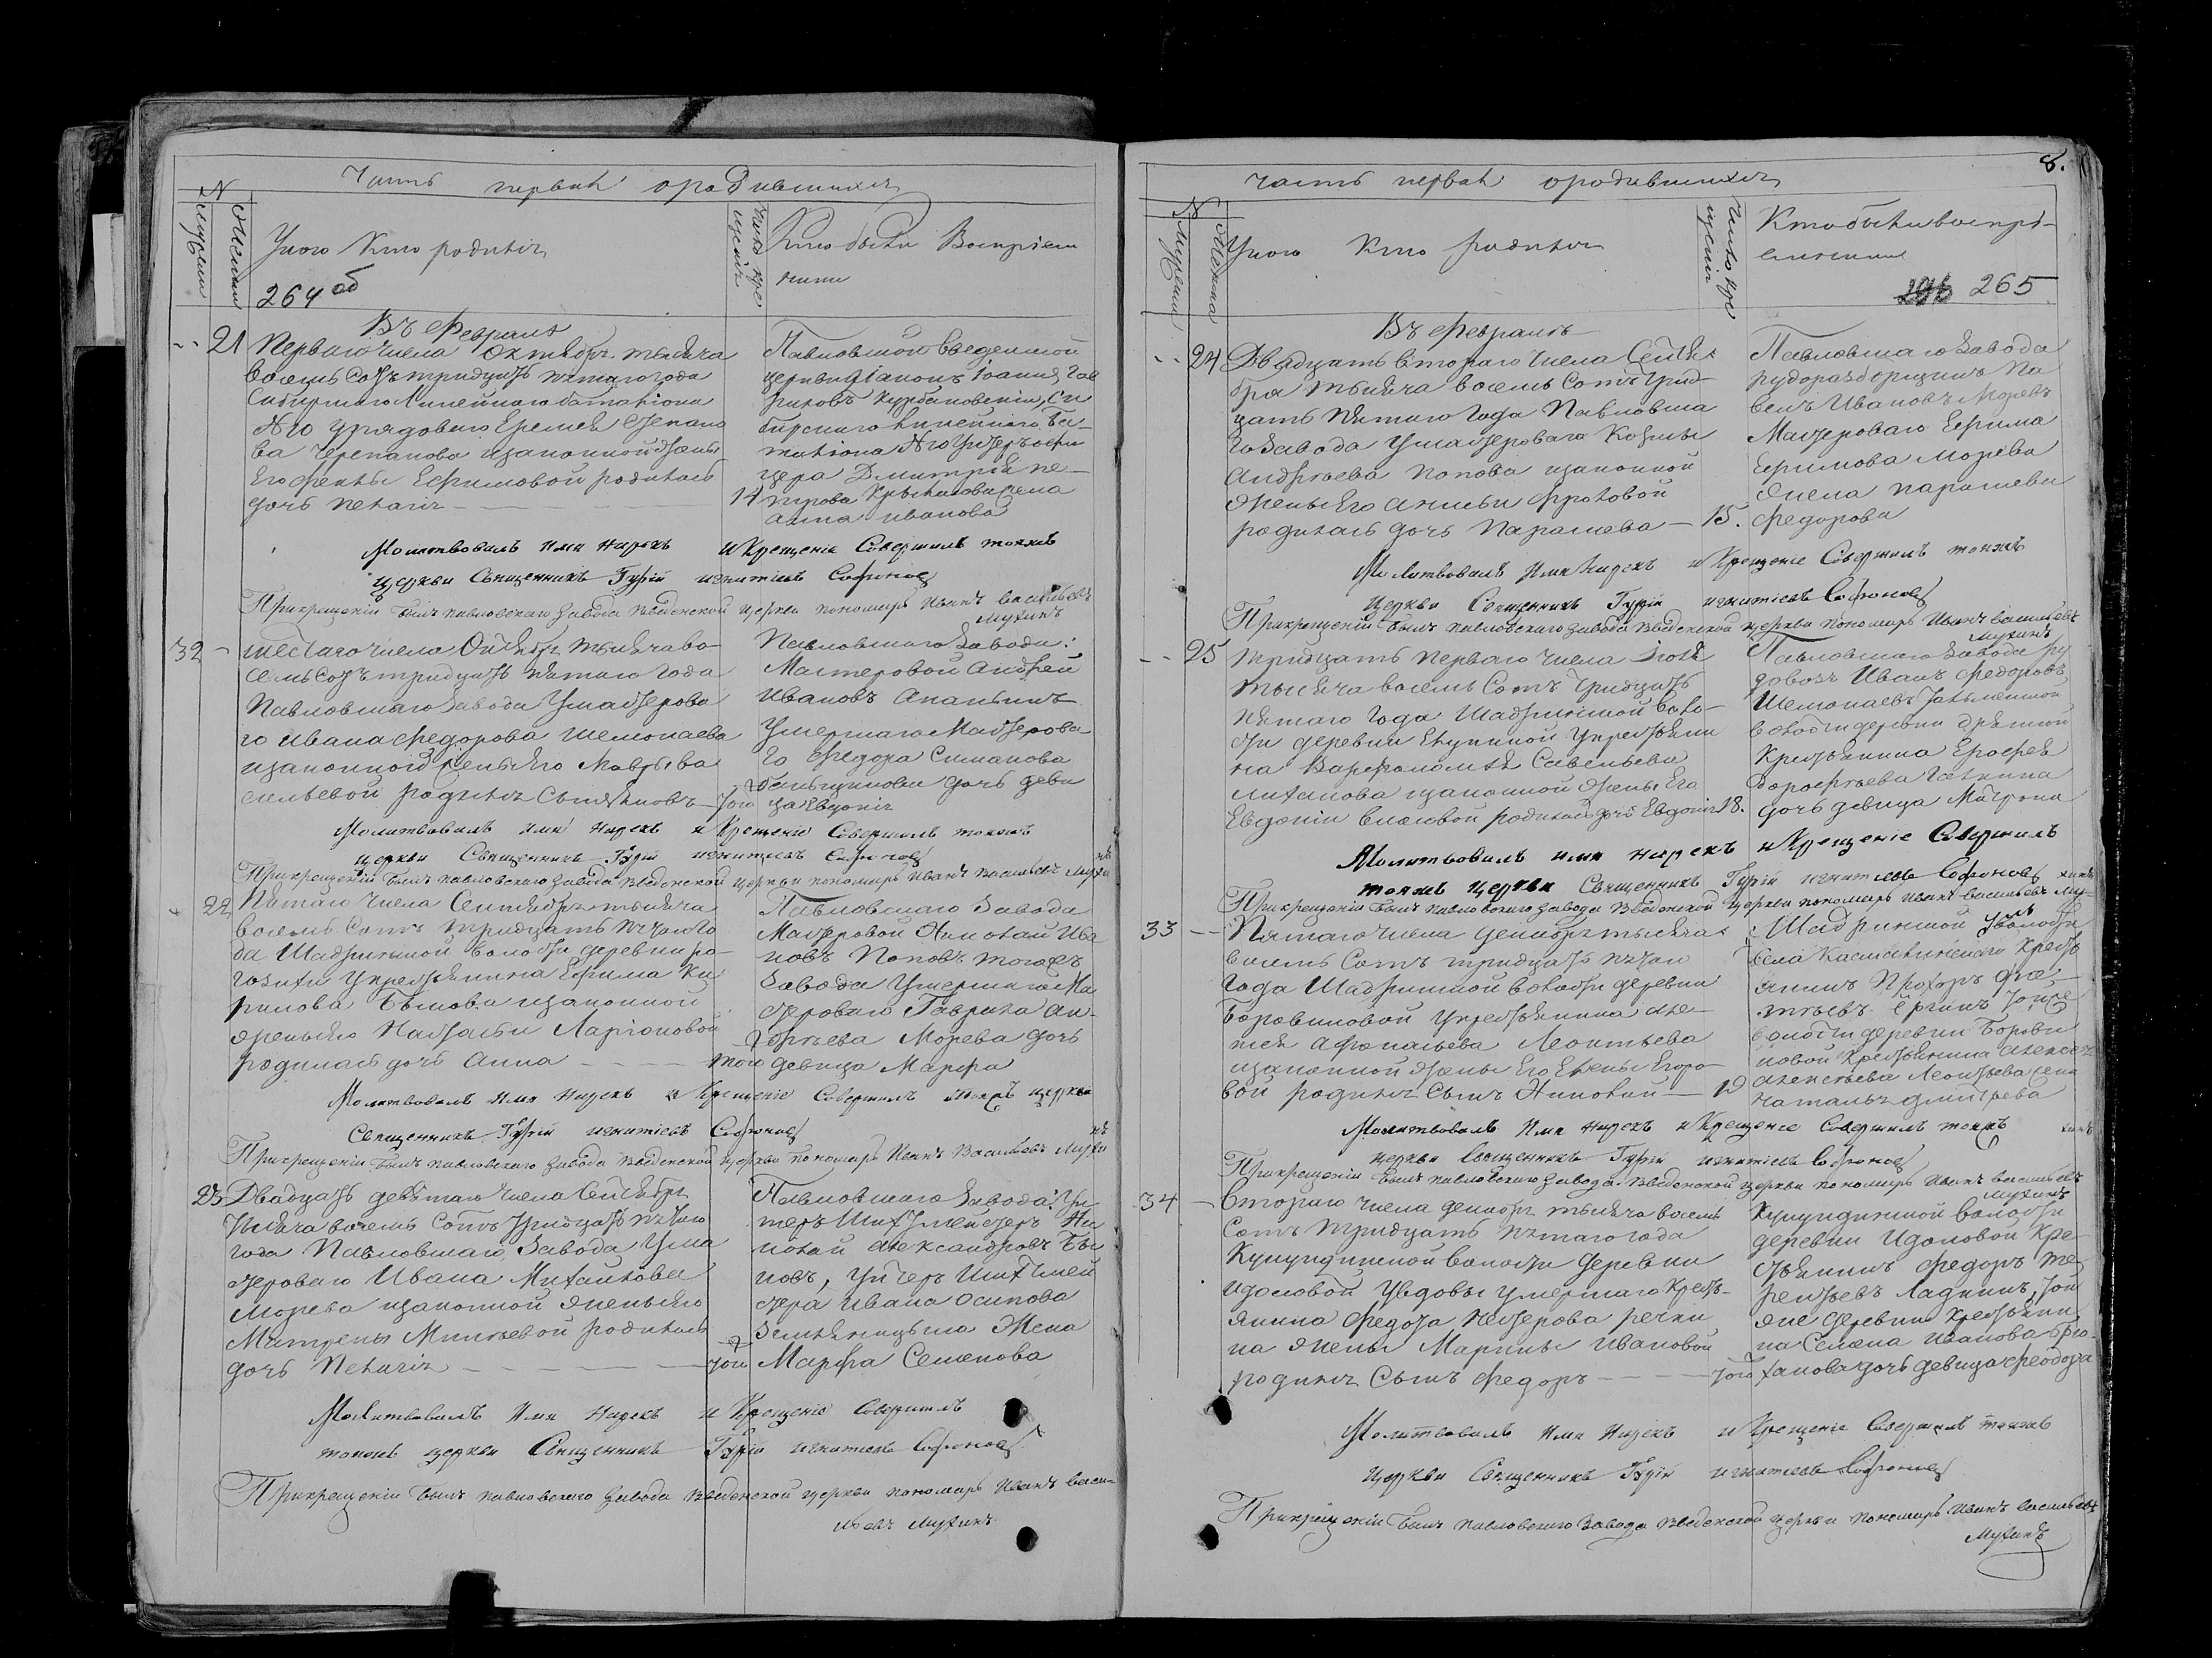 Часть первая о родившихся
N
Мужеска
Женска
У кого кто родился
Число кре
щенія
Кто были Воспріем
ники
264 об
Въ Февралѣ
21 Перваго числа Октября тысяча
восемь Сотъ тридцать пятаго года
Сибирскаго Линейнаго баталіона
№10 у рядоваго Еремея Степано
ва Черепанова изаконной жены
Его Феклы Ефимовой родилась
дочь Пелагія
14
Павловской Введенской
церкви Діаконъ Іоаннъ Гав
риловъ Курбановскій, Си
бирскаго Линейнаго Ба-
таліона №10 Унтеръ офи
цера Дмитрія Пе-
трова жена
Анна Иванова
Молитвовалъ Имя нарекъ и Крещеніе Совершилъ тояжъ
Церкви Священникъ Гурій Игнатіевъ Софоновъ
При крещеніи былъ Павловскаго завода Введенской церкви пономарь Иванъ Васильевъ
Мухинъ
32 Шестаго числа Октября тысяча во-
семь Сотъ тридцать пятаго года
Павловскаго завода Умастерова
го Ивана Федорова Шемонаева
изаконной жены Его Мавры Ва
сильевой родился Сынъ Яковъ
того
Павловскаго Завода:
Мастеровой Андрей
Ивановъ Ананьинъ
Умершаго Мастерова
го Федора Симанова
дочь деви
ца Евдокія
Молитвовалъ имя нарекъ и Крещеніе Совершилъ тояжъ
церкви Священникъ Гурій Игнатіевъ Софоновъ
При крещеніи былъ Павловскаго завода Введенской церкви пономарь Иванъ Васильевъ Мухи
нъ
22 Пятаго числа Сентября тысяча
восемь Сотъ тридцать пятаго го
да Шадринской волости деревни Ро
гозихи Укрестьянина Ефима Ки
рилова Быкова изаконной
жены Его Настасьи Ларіоновой
родилась дочь Анна
того
Павловскаго Завода
Мастеровой Николай Ива
новъ Поповъ тогожъ
Завода Умершаго Ма
стероваго Гаврила Ан-
дреева Морева дочь
девица Марфа
Молитвовалъ Имя нарекъ и Крещеніе Совершилъ тояжъ церкви
Священникъ Гурій Игнатіевъ Софоновъ
При крещеніи былъ Павловскаго завода Введенской церкви пономарь Иванъ Васильевъ Мухи
нъ
23 Двадцать девятаго числа Сентября
тысяча восемь Сотъ тридцать пятаго
года Павловскаго Завода Ума
стероваго Ивана Михайлова
Морева изаконной жены Его
Матрены Минѣевой родилась
дочь Пелагія
того
Павловскаго Завода: Ун
теръ Шихтмейстеръ Ни
колай Александровъ Бы
ковъ, Унтеръ Шихтмей
стера Ивана Осипова
Жена
Марфа Семенова
Молитвовалъ Имя нарекъ и Крещеніе Совершилъ
тояжъ церкви Священникъ Гурій Игнатіевъ Софоновъ
При крещеніи былъ Павловскаго завода Введенской церкви пономарь Иванъ Васи-
льевъ Мухинъ
8.
Часть первая о родившихся
N
Мужеска
Женска
У кого Кто родился
Число кре
щенія
Кто были воспрі-
емники
265
Въ Февралѣ
24 Двадцать втораго числа Сентя
бря тысяча восемь Сотъ трид-
цать пятаго года Павловска
го Завода Умастероваго Козмы
Андрѣева Попова изаконной
жены Его Анисьи Фроловой
родилась дочь Параскева
15.
Павловскаго Завода
рудоразборщикъ Па
велъ Ивановъ Моревъ
Мастероваго Ефима
Ефимова Морева
жена Параскева
Федорова
Молитвовалъ Имя Нарекъ и Крещеніе Совершилъ тояжъ
Церкви Священникъ Гурій Игнатіевъ Софоновъ
При крещеніи былъ Павловскаго завода Введенской церкви пономарь Иванъ Васильевъ
Мухинъ
25 тридцать перваго числа Іюля
тысяча восемь Сотъ тридцать
пятаго года Шадринской воло-
сти деревни Елуниной Укрестьяни
на Варфоломѣя Савельева
изаконной жены Его
Евдокіи Власовой родилась дочь Евдокія
18.
Павловскаго Завода ру
довозъ Иванъ Федоровъ
Шемонаевъ
волости деревни
Крестьянина Ерофея
Дорофѣева
дочь девица Матрона
Молитвовалъ имя нарекъ и Крещеніе Совершилъ
тояжъ Церкви Священникъ Гурій Игнатіевъ Софоновъ
При крещеніи былъ Павловскаго завода Введенской церкви пономарь Иванъ Васильевъ Му-
хинъ
33 Пятаго числа Декабря тысяча
восемь Сотъ тридцать пятаго
года Шадринской волости деревни
Боровиковой Укрестьянина Але-
ксея Афонасьева Леонтьева
изаконной жены Его Елены Егоро-
вой родился Сынъ Николай
19
Шадринской волости
Села Касмалинскаго Кресть
янинъ Прохоръ
той же
волости деревни Борови
ковой Крестьянина Алексея
Алексѣева Леонтьева жена
Наталья Дмитрева
Молитвовалъ Имя нарекъ и Крещеніе Совершилъ тояжъ
Церкви Священникъ Гурій Игнатіевъ Софоновъ
При крещеніи былъ Павловскаго завода Введенской церкви пономарь Иванъ Васильевъ
Мухинъ
34 Втораго числа Декабря тысяча восемь
Сотъ тридцать пятаго года
Кулундинской волости Деревни
Идоловой Увдовы умершаго Кресть-
янина Федота Нестерова Речки
на жены Марины Ивановой
родился Сынъ Федоръ
того
Кулундинской волости
деревни Идоловой Кре-
стьянинъ Федоръ Те
рентьевъ Ладнинъ, той
же деревни Крестьяни
на Семена Иванова Брю-
ханова дочь девица Феодора
Молитвовалъ Имя Нарекъ и Крещеніе Совершилъ тояжъ
Церкви Священникъ Гурій Игнатіевъ Софоновъ
При крещеніи былъ Павловскаго Завода Введенской церкви пономарь Иванъ Васильевъ
Мухинъ